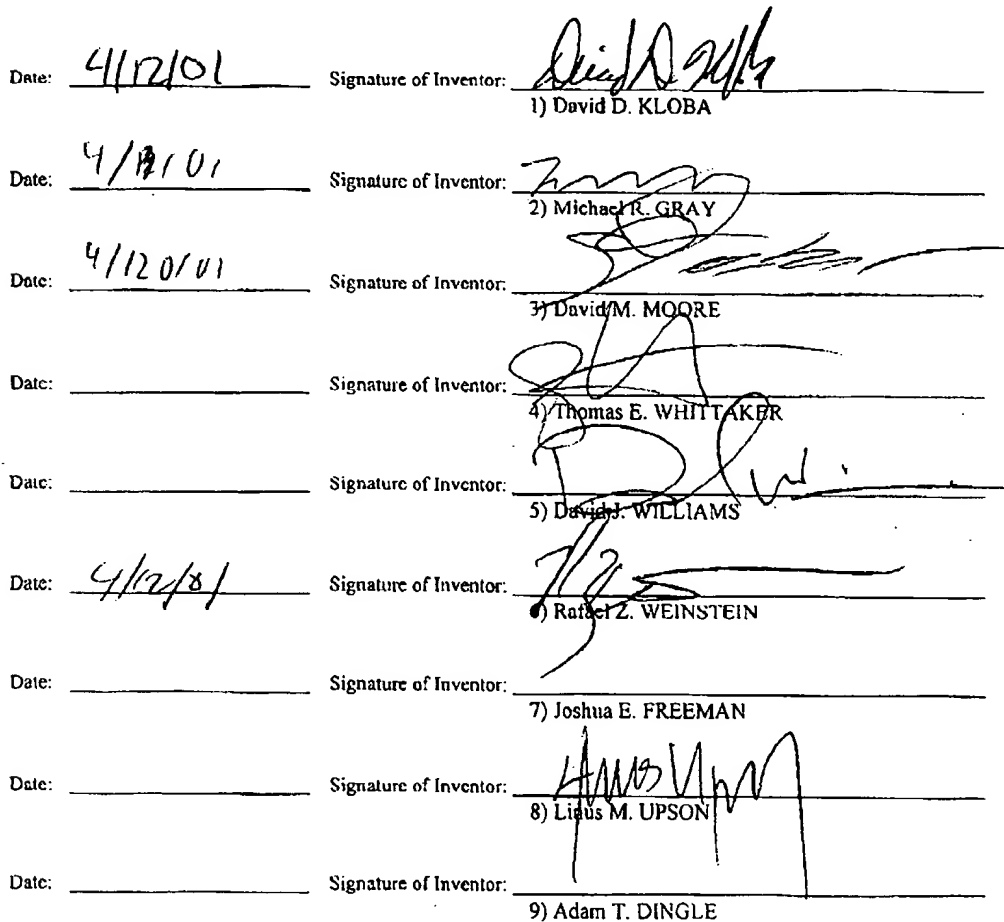 Date: 4/12/01 Signature of Inventor:
1) David D. KLOBA
Date: 4/ /01 Signature of Inventor:
2) Michael R. GRAY
Date: 4/120/01 Signature of Inventor:
3) David M. MOORE
Date: Signature of Inventor:
4) Thomas E. WHITTAKER
Date: Signature of Inventor:
5) David J. WILLIAMS
Date: 4/12/01 Signature of Inventor:
6) Rafael Z. WEINSTEIN
Date: Signature of Inventor:
7) Joshua E. FREEMAN
Date: Signature of Inventor: Linus Upson
8) Linus M. UPSON
Date: Signature of Inventor:
9) Adam T. DINGLE